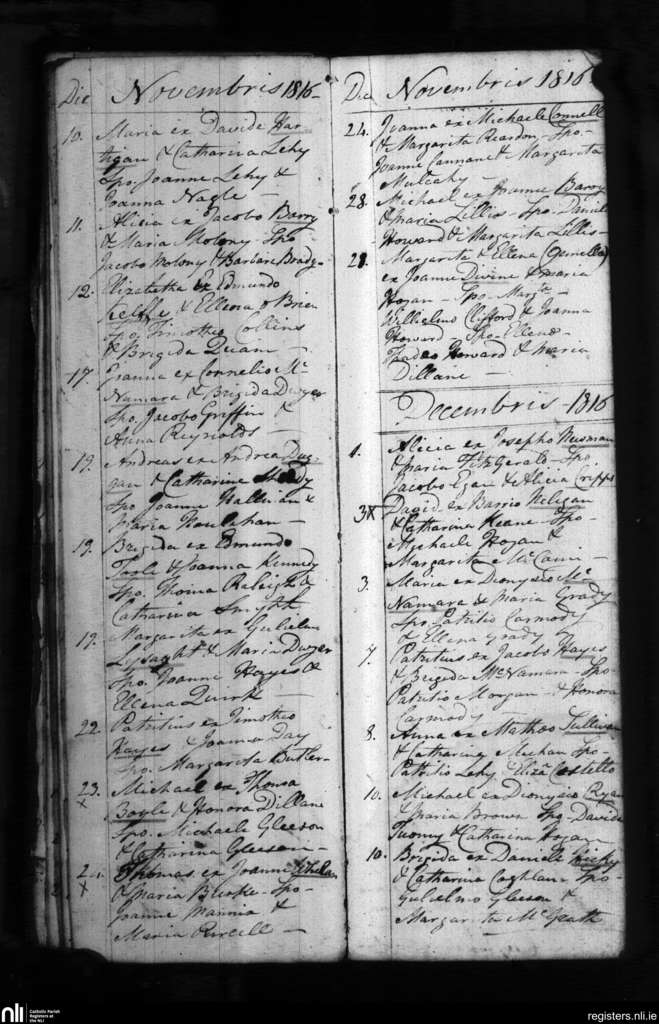 Die Novembris 1816
10. Maria ex Davide Har-
tigan & Catharina Lehy
Spo. Joanne Lehy &
Joanna Nagle —
11. Alicia ex Jacobo Barry
& Maria Molony - Spo-
Jacobo Molony & Barbara
12. Elizabetha Ex Edmundo
Keeffe & Ellena o Brien
Spo. Timotheo Collins
& Brigida Quain —
17. Joanna ex Cornelio Mc
Namara & Brigida Dwyer
Spo. Jacobo Griffin &
Anna Reynolds —
19. Andreas ex Andrea Dug-
gan & Catharina
Spo Joanne &
Maria Houlahan —
19. Brigida ex Edmundo
& Joanna Kennedy
Spo. Thoma Raleigh &
Catharina Smyth
19. Margarita ex Gulielmo
Lysaght & Maria Dwyer
Spo. Joanne Hayes &
Ellena Quirk —
22. Patritius ex Timotheo
Hayes & Joanna Day
Spo. Margarita Butler-
23. Michael ex Thoma
X Boyle & Honora Dillane
Spo. Michaele Gleeson
& Catharina Gleeson —
Thomas ex Joanne Whelan
X & Maria Burke - Spo-
Joanne Mannin &
Maria Purcell —
Die Novembris 1816
24. Joanna ex Michaele Connell
& Margarita Reardon - Spo-
Joanne Cannane & Margarita
Mulcahy —
28. Michael ex Joanne Barry
& Maria Lillis - Spo- Daniele
Howard & Margarita Lillis-
28. Margarita & Ellena (Gemella)
ex Joanne Divine & Maria
Hogan — Spo. Margta-
Willielmo Clifford & Joanna
Howard Spo- Ellena-
Thadeo Howard & Maria
Dillane —
Decembris - 1816
1. Alicia ex Josepho Newman
& Maria FitzGerald - Spo
Jacobo Egan & Alicia Cripps
3X David ex Barrio Neligan
& Catharina Keane - Spo-
Michaele Hogan &
Margarita
3. Maria ex Dionysio Mc
Namara & Maria Grady
Spo. Patritio Carmody
& Ellena Grady
7. Patritius ex Jacobo Hayes
& Brigida McNamara - Spo-
Patritio Morgan & Honora
Carmody —
8. Anna ex Matheo Sullivan
& Catharina Meehan Spo-
Patritio Lehy & Eliza Costello
10. Michael ex Dionysio Ryan
& Maria Brown Spo- Davide
Twomy & Catharina Hogan
10. Brigida ex Daniele Hicky
& Catharina Coghlan - Spo-
Gulielmo Gleeson &
Margarita McGrath
nli Catholic Parish
Registers at
the NLI
registers.nli.ie